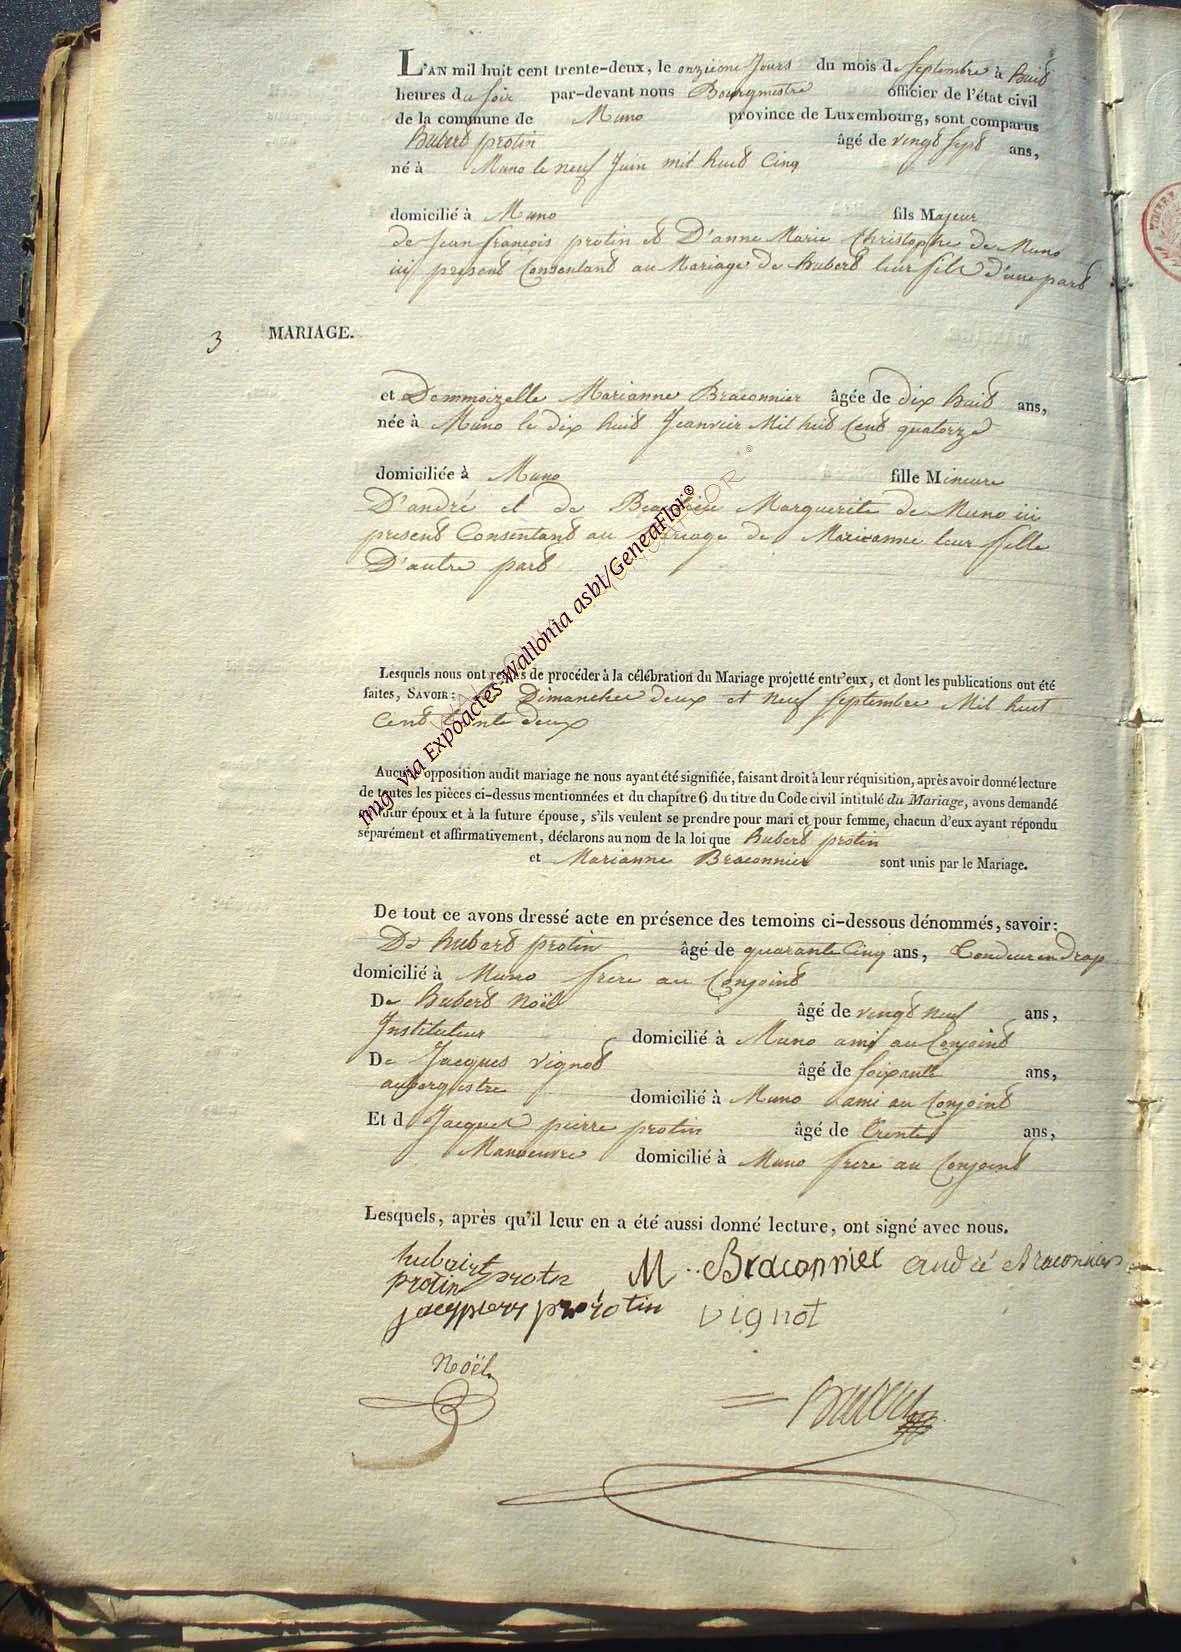 L'AN mil huit cent trente-deux, le onzieme Jours du mois de Septembre à huid
heures du soir par-devant nous Bourgmestre officier de l'état civil
de la commune de Muno province de Luxembourg, sont comparus
huberd protin âgé de vingd sepd ans,
né à Muno le neuf Juin mil huid Cinq
domicilié à Muno fils Majeur
de Jean françois protin et D'anne Marie Christophe de Muno
ici presend Consentand au Mariage de huberd leur fils d'une pard
3 MARIAGE.
et Demmoizelle Marianne Braconnier âgée de dix huid ans,
née à Muno le dix huid Jeanvier Mil huid Cend quatorze
domiciliée à Muno fille Mineure
D'andré et de Marguerite de Muno ici
presend Consentand au Mariage de Marieanne leur fille
D'autre pard
Lesquels nous ont requis de procéder à la célébration du Mariage projetté entr'eux, et dont les publications ont été
faites, SAVOIR: Dimanchee deux et Neuf Septembre Mil huit
Cend trente deux
Aucune opposition audit mariage ne nous ayant été signifiée, faisant droit à leur réquisition, après avoir donné lecture
de toutes les pièces ci-dessus mentionnées et du chapitre 6 du titre du Code civil intitulé du Mariage, avons demandé
au futur époux et à la future épouse, s'ils veulent se prendre pour mari et pour femme, chacun d'eux ayant répondu
séparément et affirmativement, déclarons au nom de la loi que huberd protin
et Marianne Braconnier sont unis par le Mariage.
De tout ce avons dressé acte en présence des temoins ci-dessous dénommés, savoir:
De huberd protin âgé de quarante Cinq ans, Tondeur en drap
domicilié à Muno frere au Conjoind
De huberd Noël âgé de vingd neuf ans,
Instituteur domicilié à Muno ami au Conjoind
De Jacques vignod âgé de soixante ans,
aubergistre domicilié à Muno ami au Conjoind
Et d Jacques pierre protin âgé de trente ans,
Manoeuvre domicilié à Muno frere au Conjoind
Lesquels, après qu'il leur en a été aussi donné lecture, ont signé avec nous.
hubairt protin M Braconnier andré Braconnier
protin
vignot
Noël
Img via Expoactes-Wallonia asbl/GeneaFlor®